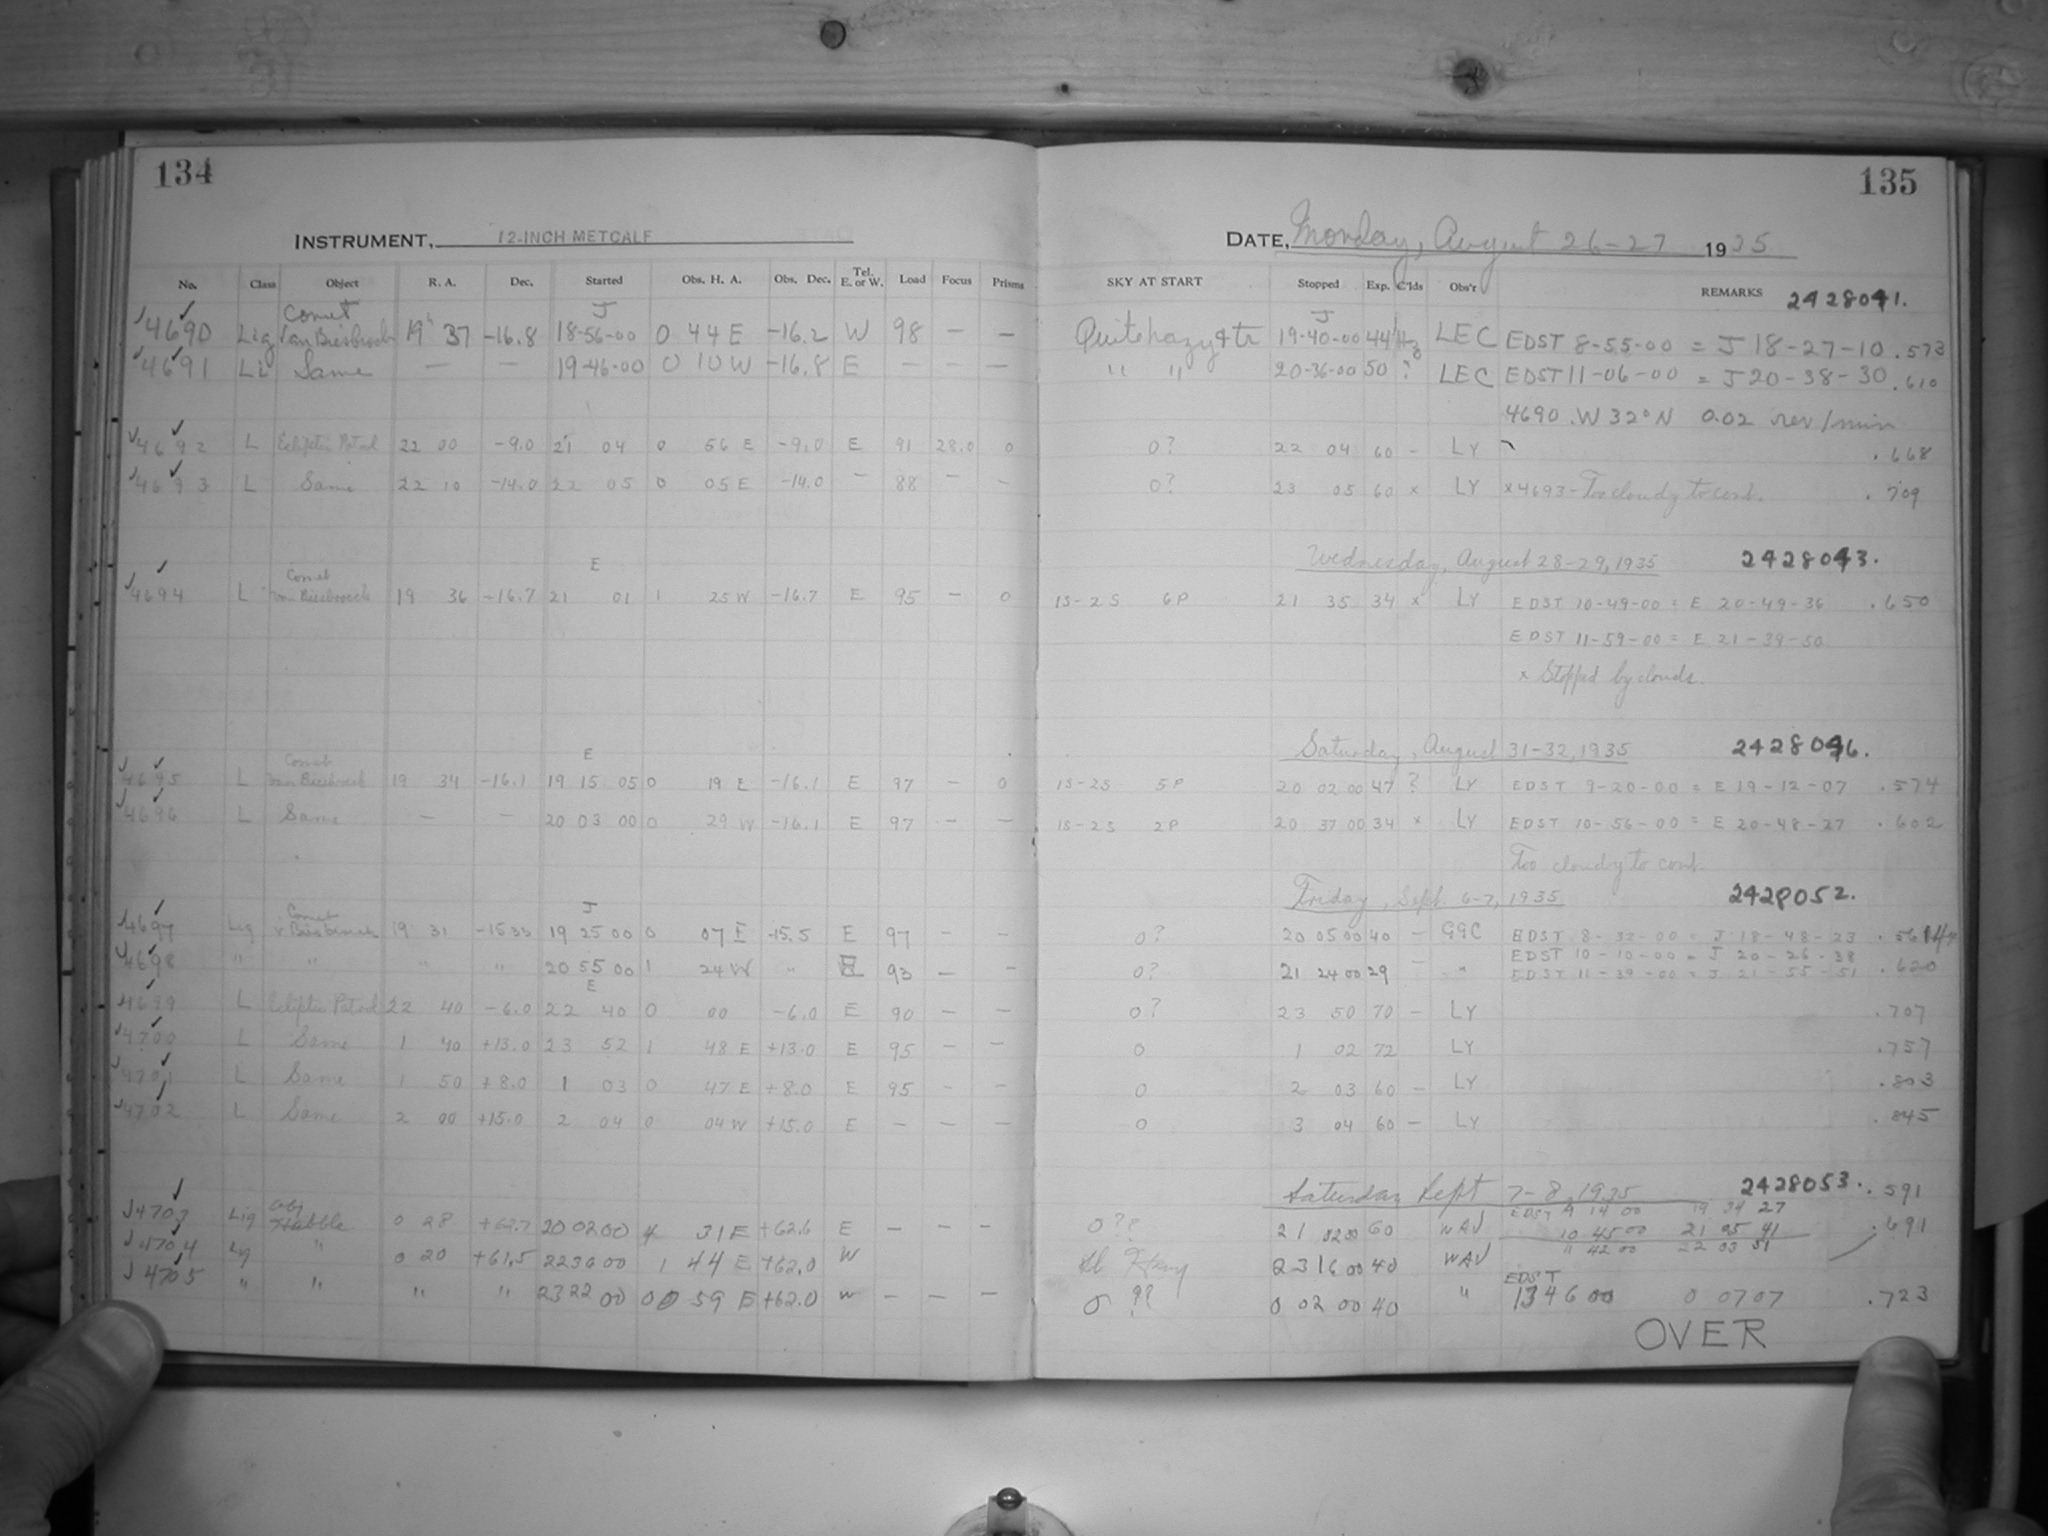 134
135
INSTRUMENT, 12-INCH METCALF
DATE, Monday, August 26-27 1935
No. Class Object R. A. Dec. Started Obs. H. A. Obs. Dec. Tel. E. or W. Load Focus Prisms SKY AT START Stopped Exp. C'lds Obs'r REMARKS 2428041.
Comet J J
4690 Lig Van Biesbroeck 19h 37 -16.8 18-56-00 0 44 E -16.2 W 98 — — Quite hazy & tr 19-40-00 44 Hz LEC EDST 8-55-00 = J 18-27-10 .573
4691 Li Same — — 19-46-00 0 10 W -16.8 E — — — " " 20-36-00 50 ? LEC EDST 11-06-00 = J 20-38-30 .610
4690 . W 32° N 0.02 rev/min
4692 L Ecliptic Patrol 22 00 -9.0 21 04 0 56 E -9.0 E 91 28.0 0 0? 22 04 60 - LY .668
4693 L Same 22 10 -14.0 22 05 0 05 E -14.0 — 88 — — 0? 23 05 60 x LY x 4693 - Too cloudy to cont. .709
Wednesday, August 28-29, 1935 2428043.
Comet E
4694 L van Biesbroeck 19 36 -16.7 21 01 1 25 W -16.7 E 95 — 0 1S-2S 6P 21 35 34 x LY EDST 10-49-00 = E 20-49-36 .650
EDST 11-59-00 = E 21-39-50
x Stopped by clouds.
Saturday, August 31-32, 1935 2428046.
Comet E
4695 L van Biesbroeck 19 34 -16.1 19 15 05 0 19 E -16.1 E 97 — 0 1S-2S 5P 20 02 00 47 ? LY EDST 9-20-00 = E 19-12-07 .574
4696 L Same — — 20 03 00 0 29 W -16.1 E 97 — — 1S-2S 2P 20 37 00 34 x LY EDST 10-56-00 = E 20-48-27 .602
Too cloudy to cont.
Friday, Sept. 6-7, 1935 2428052.
Comet J
4697 Lig v. Biesbroeck 19 31 19 25 00 0 07 E -15.5 E 97 — — 0? 20 05 00 40 — GGC EDST 8-32-00 = J 18-48-23
4698 " " " " 20 55 00 1 24 W " E 93 — — 0? 21 24 00 29 — " EDST 10-10-00 = J 20-26-38
E EDST 11-39-00 = J 21-55-51 .620
4699 L Ecliptic Patrol 22 40 -6.0 22 40 0 00 -6.0 E 90 — — 0? 23 50 70 — LY .707
4700 L Same 1 40 +13.0 23 52 1 48 E +13.0 E 95 — — 0 1 02 72 LY .757
4701 L Same 1 50 +8.0 1 03 0 47 E +8.0 E 95 — — 0 2 03 60 — LY .803
4702 L Same 2 00 +15.0 2 04 0 04 W +15.0 E — — — 0 3 04 60 — LY .845
Saturday Sept 7-8, 1935 2428053. .591
4703 Lig Obj Hubble 0 28 +62.7 20 02 00 4 31 E +62.6 E — — — 0?? 21 02 00 60 WAJ EDST 9 14 00 19 34 27
4704 Lig " 0 20 +61.5 22 36 00 1 44 E +62.0 W 23 16 00 40 WAJ 10 45 00 21 05 41 .691
" 42 00 22 03 51
4705 " " " " 23 22 00 00 59 E +62.0 W — — — 0 ?? 0 02 00 40 " EDST 1346 00 0 07 07 .723
OVER